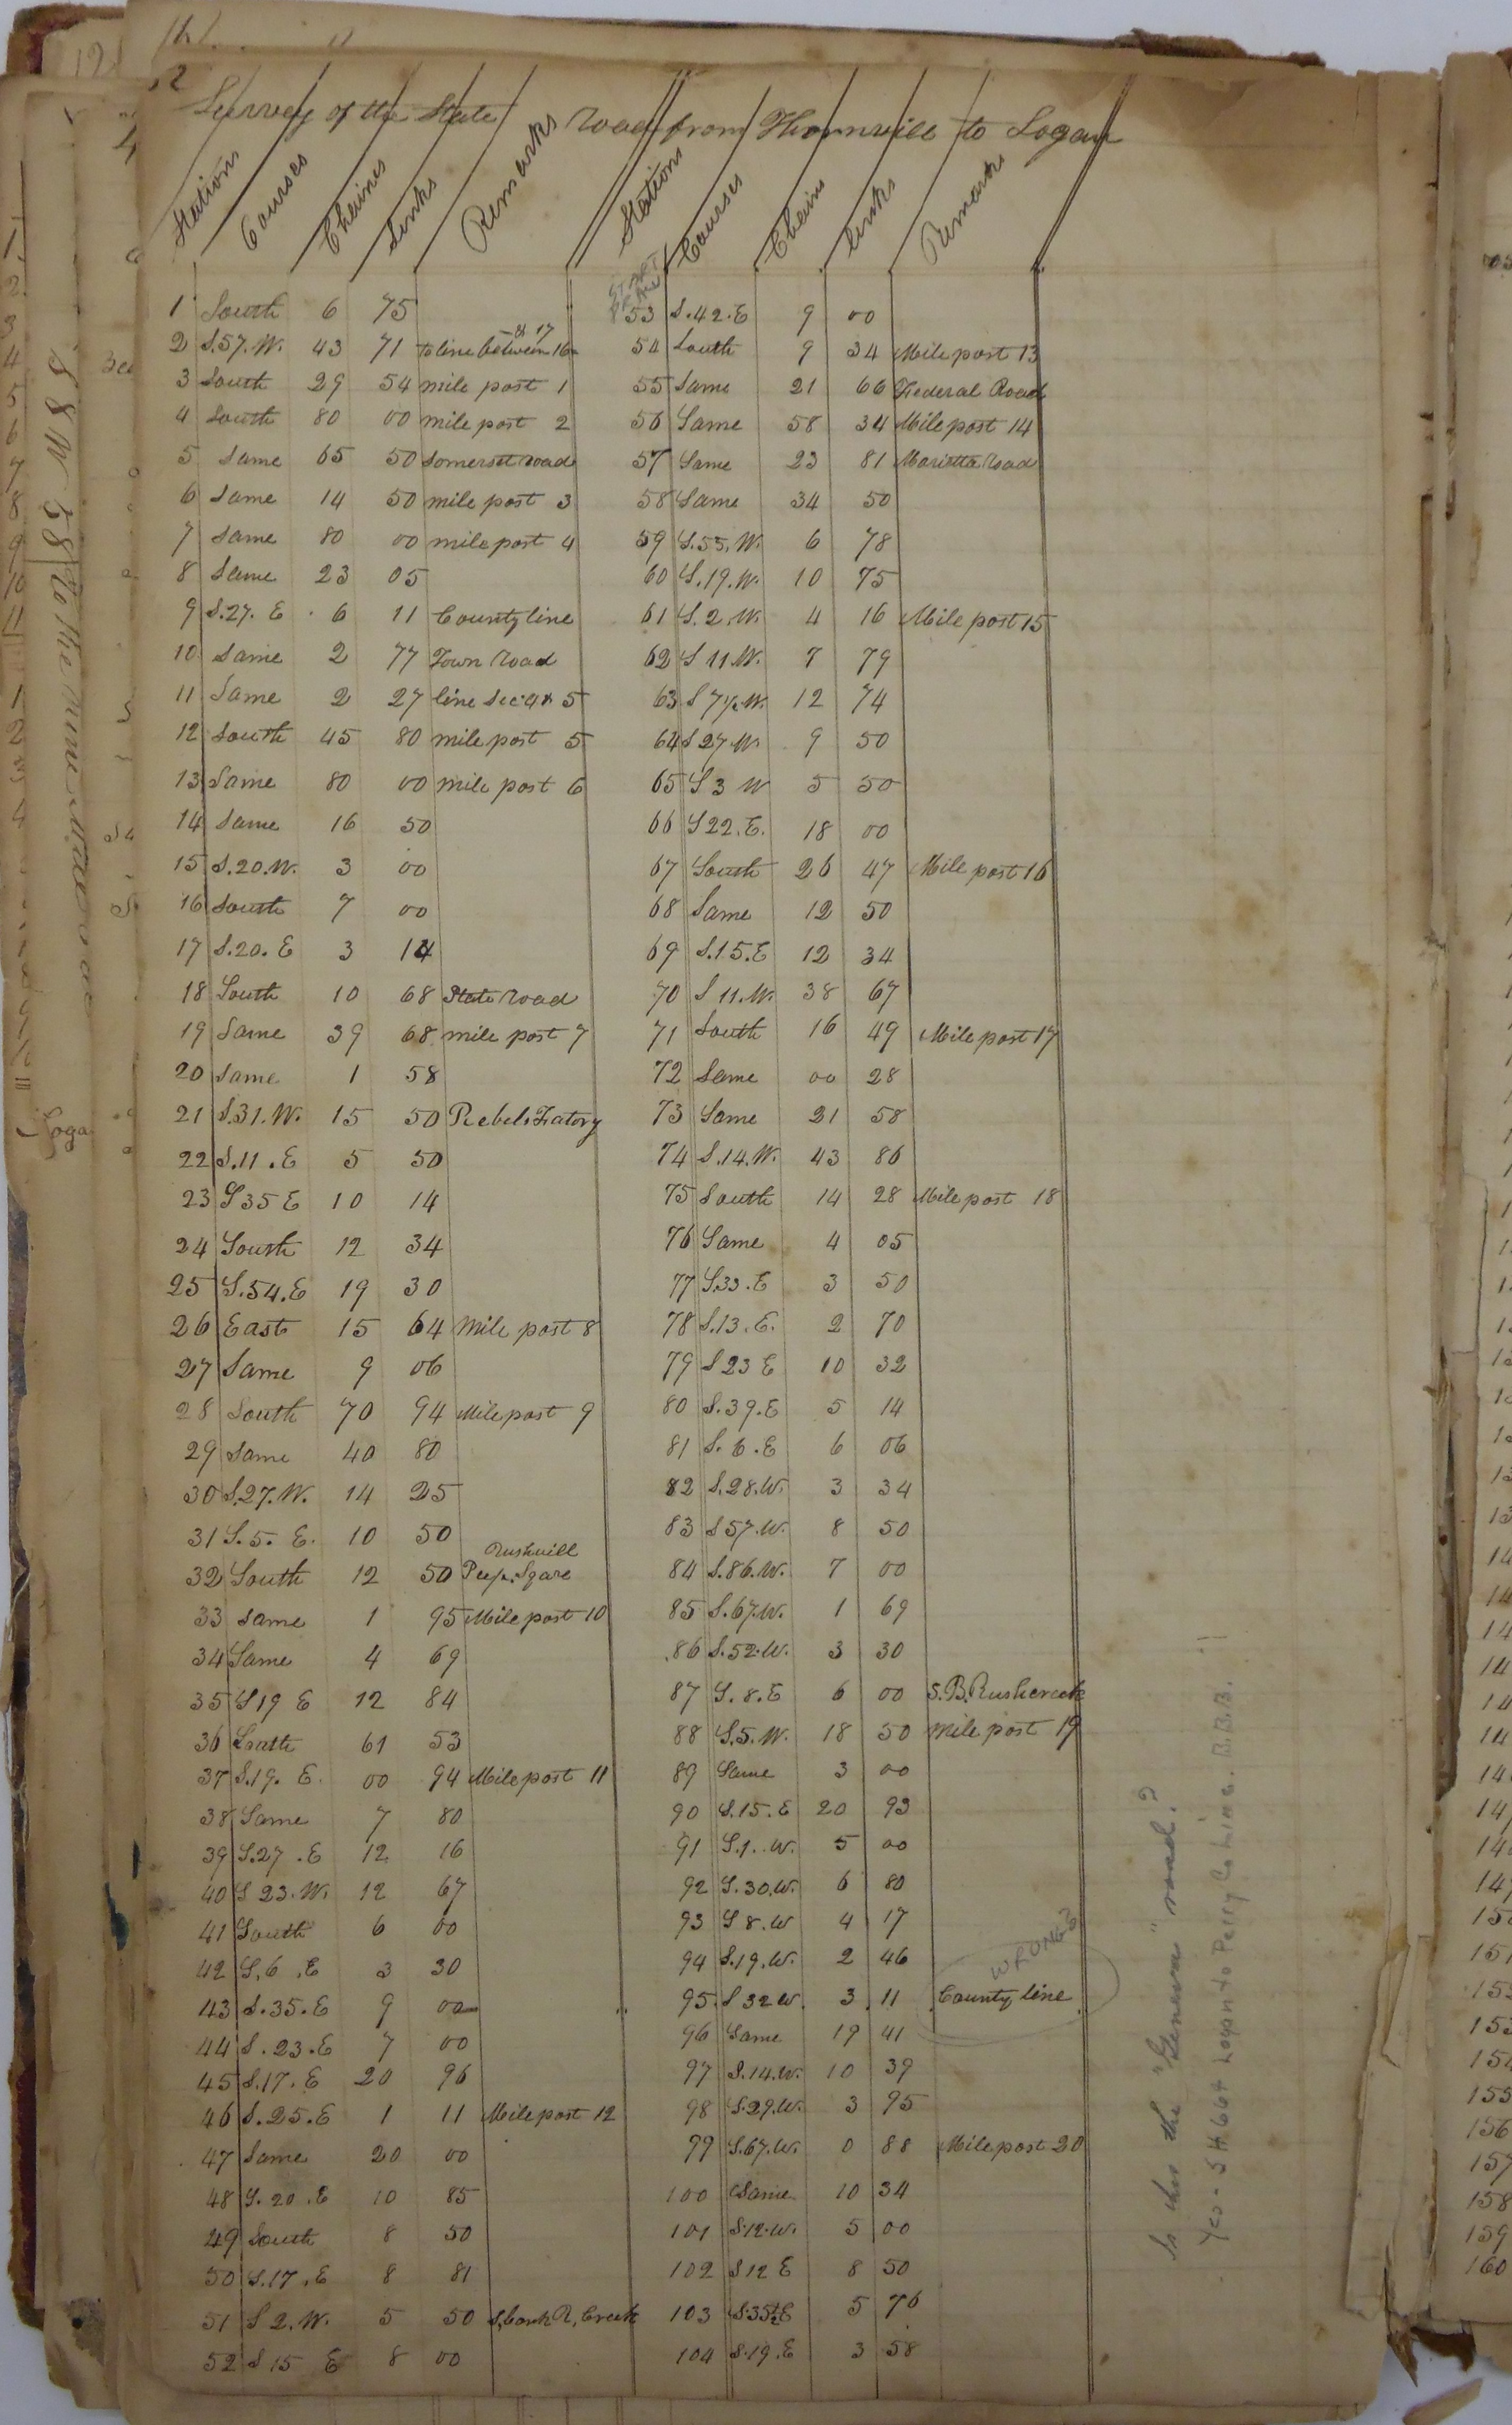 2
Survey of the State road from Thornville to Logan
Stations Courses Chains Links Remarks
1 South 6 75
2 S.57.W. 43 71 to line between 16 & 17
3 South 29 54 mile post 1
4 South 80 00 mile post 2
5 Same 65 50 Somerset road
6 Same 14 50 mile post 3
7 Same 80 00 mile post 4
8 Same 23 05
9 S.27. E 6 11 County line
10 Same 2 77 Town road
11 Same 2 27 line Sec 4 & 5
12 South 45 80 mile post 5
13 Same 80 00 mile post 6
14 Same 16 50
15 S.20.W. 3 00
16 South 7 00
17 S.20. E 3 14
18 South 10 68 State road
19 Same 39 68 mile post 7
20 Same 1 58
21 S.31.W. 15 50 Rebels Fatory
22 S.11.E 5 50
23 S35 E 10 14
24 South 12 34
25 S.54.E 19 30
26 East 15 64 Mile post 8
27 Same 9 06
28 South 70 94 Mile post 9
29 Same 40 80
30 S.27.W. 14 25
31 S.5. E. 10 50
32 South 12 50 Rushvill
33 Same 1 95 Mile post 10
34 Same 4 69
35 S19 E 12 84
36 South 61 53
37 S.19. E. 00 94 Mile post 11
38 Same 7 80
39 S.27.E 12 16
40 S 23.W. 12 67
41 South 6 00
42 S.6.E 3 30
43 S.35.E 9 00
44 S.23.E 7 00
45 S.17.E 20 96
46 S.25.E 1 11 Mile post 12
47 Same 20 00
48 S.20.E 10 85
49 South 8 50
50 S.17.E 8 81
51 S 2.W. 5 50 S, bank R, Creek
52 S 15 E 8 00
Stations Courses Chains links Remarks
START
53 S.42.E 9 00
54 South 9 34 Mile post 13
55 Same 21 66 Federal Road
56 Same 58 34 Mile post 14
57 Same 23 81 Marietta road
58 Same 34 50
59 S.55.W. 6 78
60 S.19.W. 10 75
61 S.2.W. 4 16 Mile post 15
62 S 11.W. 7 79
63 S 7½.W. 12 74
64 S 27.W. 9 50
65 S 3 W 5 50
66 S22.E. 18 00
67 South 26 47 Mile post 16
68 Same 12 50
69 S.15.E 12 34
70 S 11.W. 38 67
71 South 16 49 Mile post 17
72 Same 00 28
73 Same 21 58
74 S.14.W. 43 86
75 South 14 28 Mile post 18
76 Same 4 05
77 S.33.E 3 50
78 S.13.E. 2 70
79 S 23 E 10 32
80 S.39.E 5 14
81 S.6.E 6 06
82 S.28.W. 3 34
83 S 57.W. 8 50
84 S.86.W. 7 00
85 S.67.W. 1 69
86 S.52.W. 3 30
87 S.8.E 6 00 S.B. Rushcreek
88 S.5.W. 18 50 mile post 19
89 Same 3 00
90 S.15.E 20 93
91 S.1..W. 5 00
92 S.30.W. 6 80
93 S 8.W 4 17
94 S.19.W. 2 46
WRONG?
95 S 32 W. 3 11 County line
96 Same 19 41
97 S.14.W. 10 39
98 S.29.W. 3 95
99 S.67.W. 0 88 Mile post 20
100 Same 10 34
101 S.12.W. 5 00
102 S 12 E 8 50
103 S.35½E 5 76
104 S.19.E 3 58
Is this the "Geneva" road?
Yes - SH 664 Logan to Perry Co Line. B.B.B.
Loga
153
154
155
156
157
158
159
160